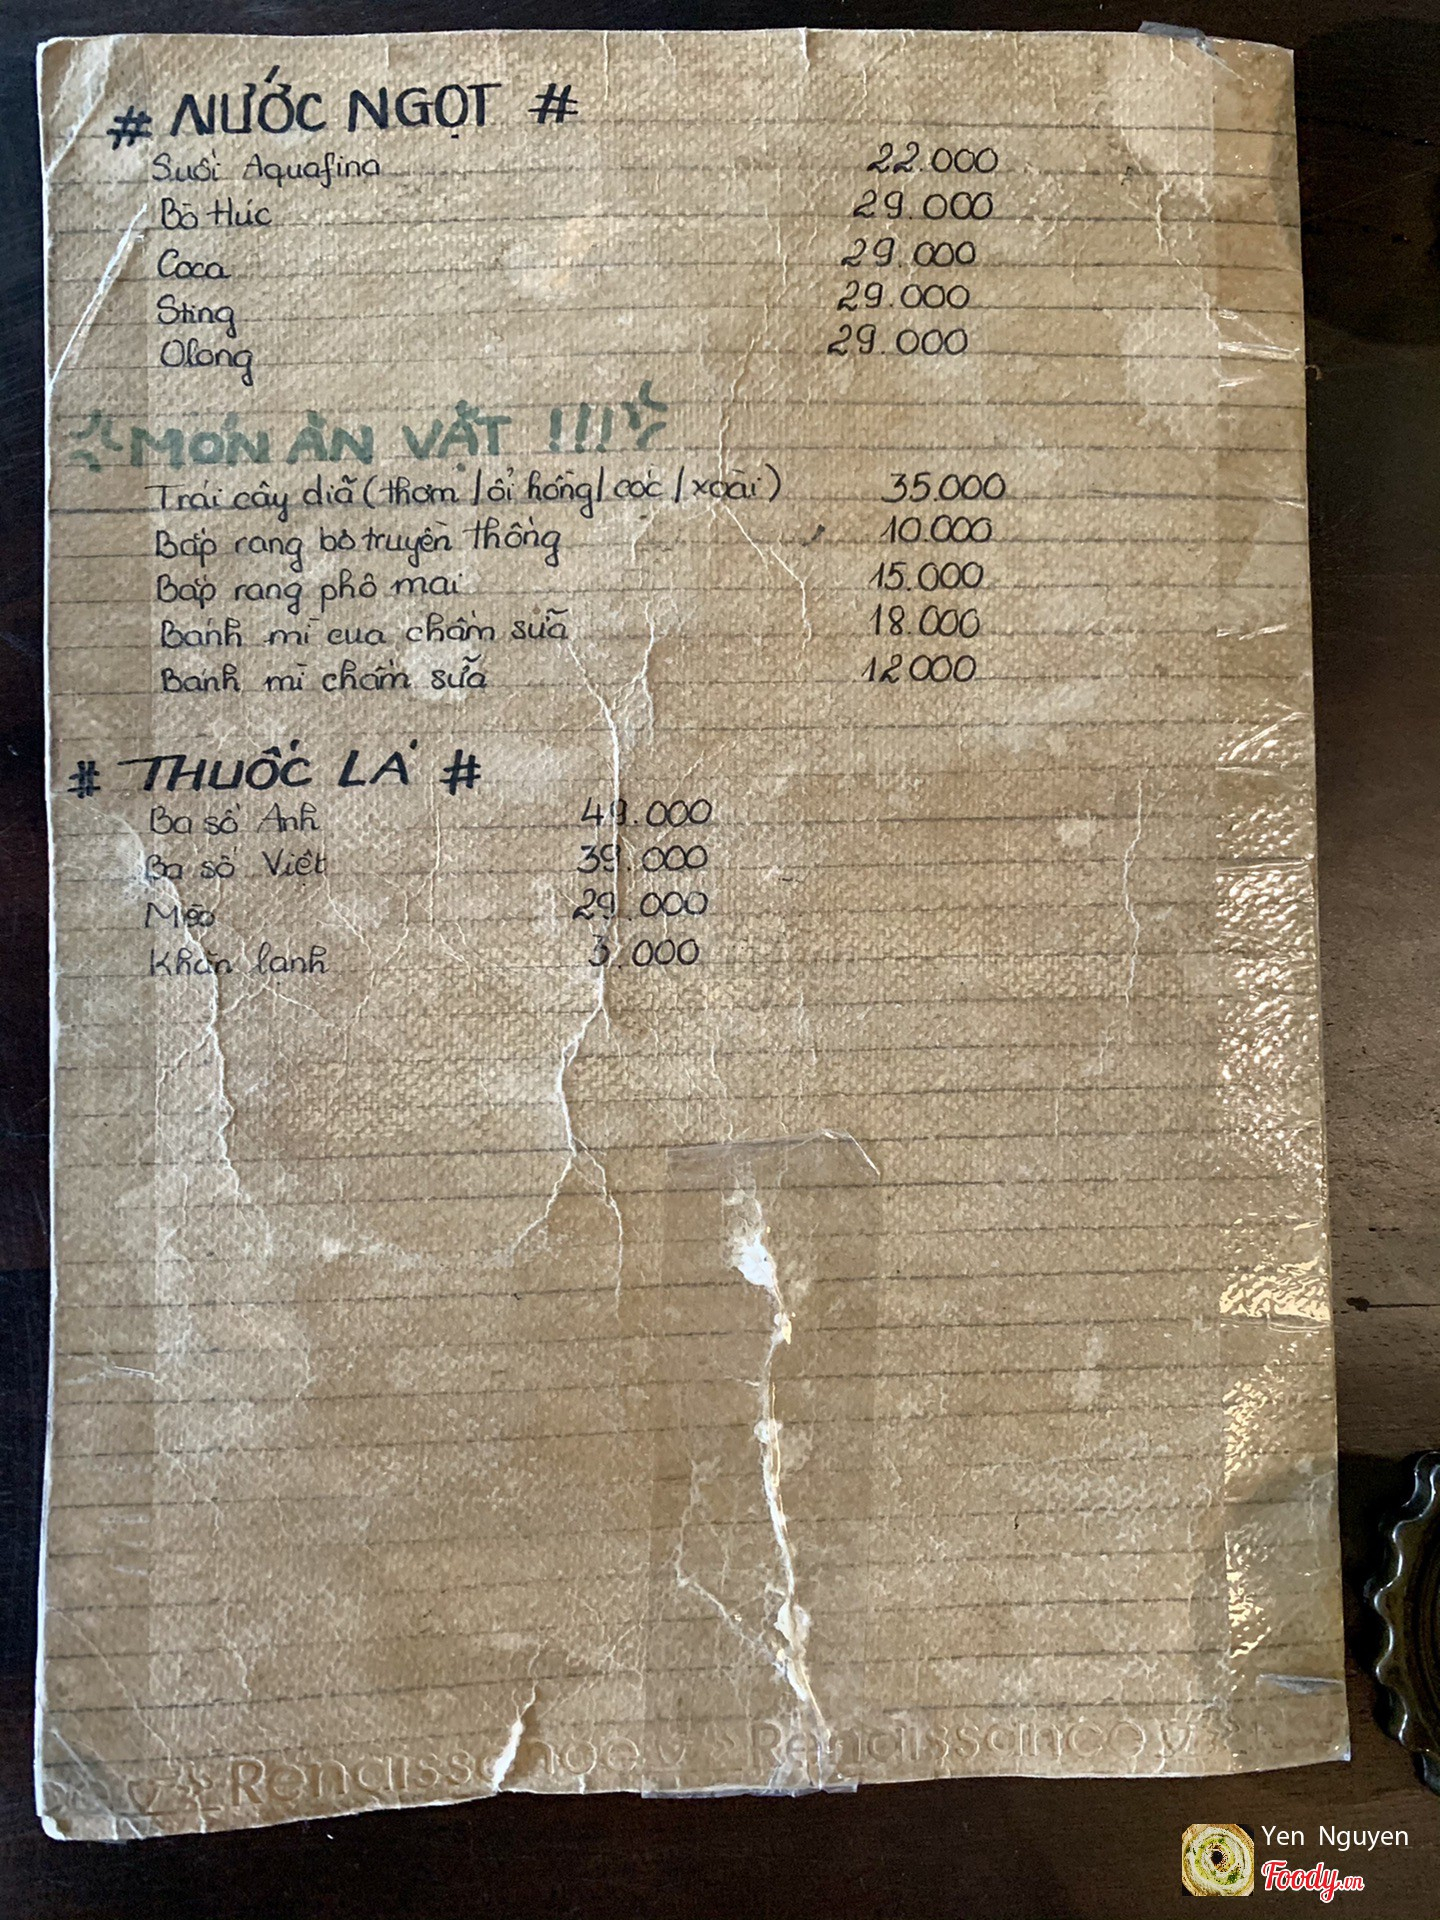 # NƯỚC NGỌT #
Suối Aquafina 22.000
Bò Húc 29.000
Coca 29.000
Sting 29.000
Olong 29.000
MÓN ĂN VẶT !!!
Trái cây dĩa (thơm / ổi hồng / cóc / xoài) 35.000
Bắp rang bơ truyền thống 10.000
Bắp rang phô mai 15.000
Bánh mì cua chấm sữa 18.000
Bánh mì chấm sữa 12000
# THUỐC LÁ #
Ba số Anh 49.000
Ba số Việt 39.000
Mèo 29.000
Khăn lạnh 3.000
Renaissance Renaissance
Yen Nguyen
Foody.vn